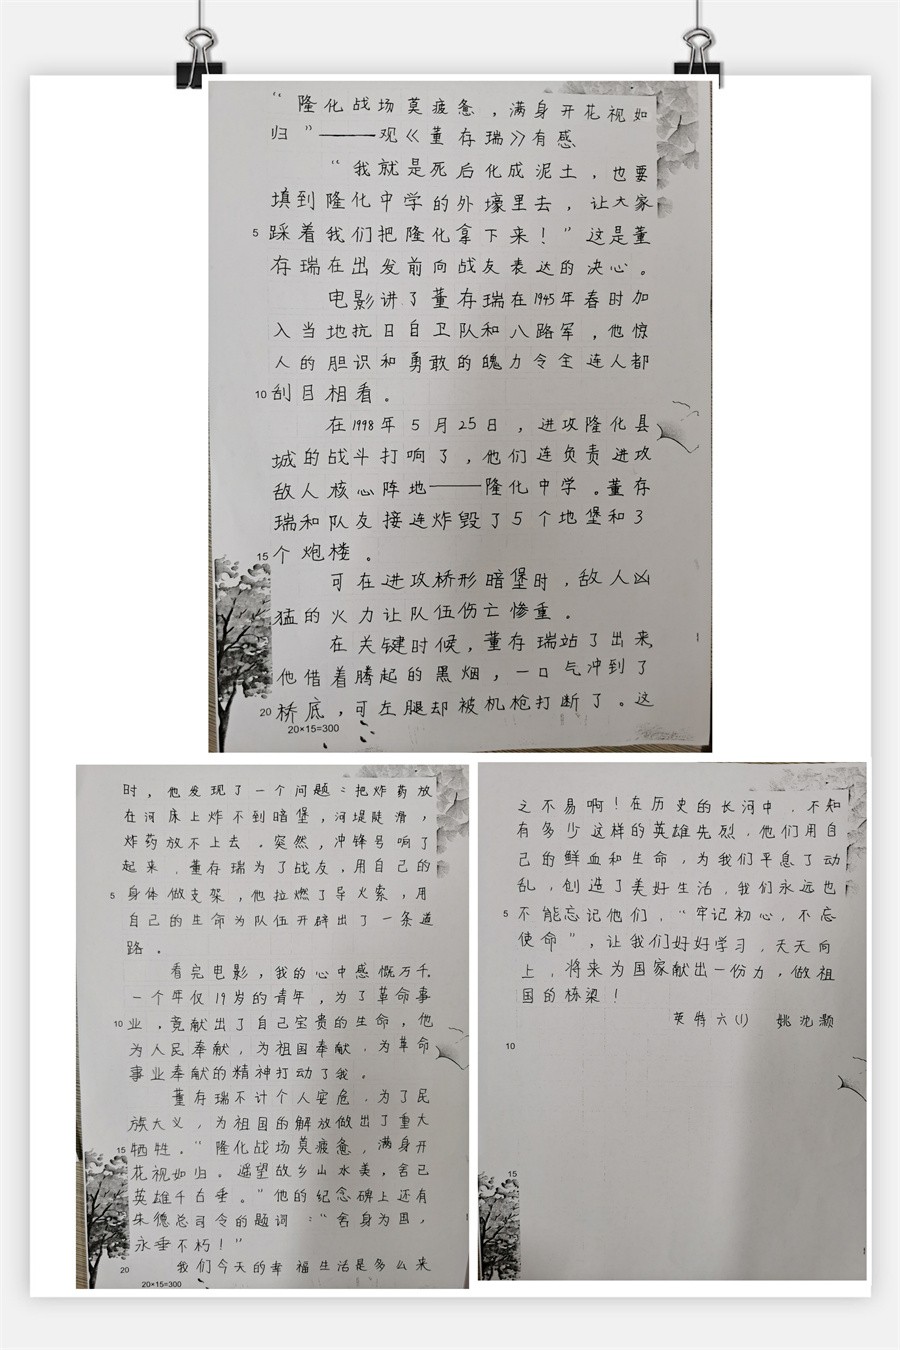 “隆化战场莫疲惫，满身开花视如
归”——观《董存瑞》有感
“我就是死后化成泥土，也要
填到隆化中学的外壕里去，让大家
5 踩着我们把隆化拿下来！”这是董
存瑞在出发前向战友表达的决心。
电影讲了董存瑞在1945年春时加
入当地抗日自卫队和八路军，他惊
人的胆识和勇敢的魄力令全连人都
10 刮目相看。
在1998年5月25日，进攻隆化县
城的战斗打响了，他们连负责进攻
敌人核心阵地——隆化中学。董存
瑞和队友接连炸毁了5个地堡和3
15 个炮楼。
可在进攻桥形暗堡时，敌人凶
猛的火力让队伍伤亡惨重。
在关键时候，董存瑞站了出来，
他借着腾起的黑烟，一口气冲到了
20 桥底，可左腿却被机枪打断了。这
20×15=300
时，他发现了一个问题：把炸药放
在河床上炸不到暗堡，河堤陡滑，
炸药放不上去。突然，冲锋号响了
起来，董存瑞为了战友，用自己的
5 身体做支架，他拉燃了导火索，用
自己的生命为队伍开辟出了一条道
路。
看完电影，我的心中感慨万千，
一个年仅19岁的青年，为了革命事
10 业，竟献出了自己宝贵的生命，他
为人民奉献，为祖国奉献，为革命
事业奉献的精神打动了我。
董存瑞不计个人安危，为了民
族大义，为祖国的解放做出了重大
15 牺牲。“隆化战场莫疲惫，满身开
花视如归。遥望故乡山水美，舍己
英雄千古垂。”他的纪念碑上还有
朱德总司令的题词：“舍身为国，
永垂不朽！”
20 我们今天的幸福生活是多么来
20×15=300
之不易啊！在历史的长河中，不知
有多少这样的英雄先烈，他们用自
己的鲜血和生命，为我们平息了动
乱，创造了美好生活，我们永远也
5 不能忘记他们，“牢记初心，不忘
使命”，让我们好好学习，天天向
上，将来为国家献出一份力，做祖
国的栋梁！
英特六(1) 姚沈颢
10
15